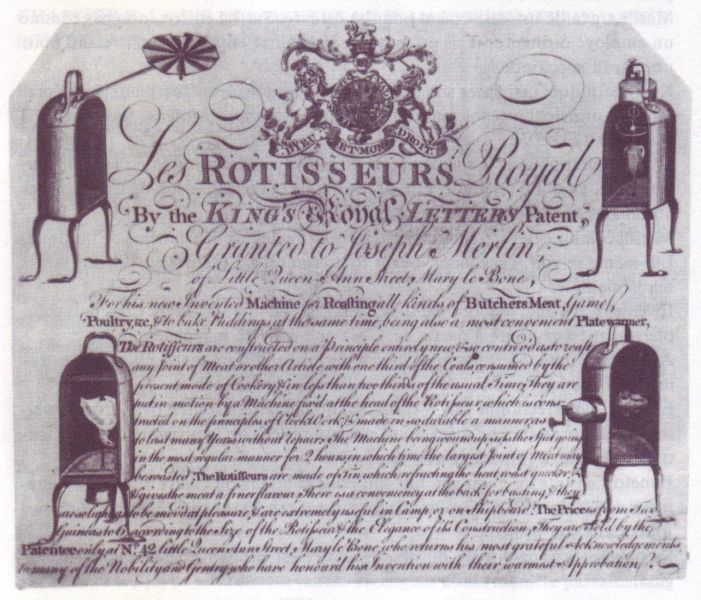 DIEU ET MON DROIT
Les ROTISSEURS Royal
By the KING'S Royal LETTERS Patent,
Granted to Joseph Merlin,
of Little Queen Ann Street, Mary le Bone,
For his new Invented Machine for Roasting all kinds of Butchers Meat, Game,
Poultry, &c, & to bake Puddings at the same time, being also a most convenient Platewarmer,
The Rotisseurs are constructed on a Principle entirely new, & so contrived as to roast
any Joint of Meat or other Article with one third of the Coals consumed by the
present mode of Cookery & in less than two thirds of the usual Time; They are
put in motion by a Machine fix'd at the head of the Rotisseur, which is cons
tructed on the principles of Clock Work & made in so durable a manner, as
to last many Years without repair. The Machine being wound up sets the Spit going
in the most regular manner for 2 hours, in which time the largest Joint of Meat may
be roasted. The Rotisseurs are made of Tin, which refracting the heat, roast quicker,
& gives the meat a finer flavour. There is a conveniency at the back for basting, & they
are so light as to be mov'd at pleasure, & are extremely useful in Camp, or on Shipboard. The Price is from Two
Guineas to 6 according to the Size of the Rotisseur & the Elegance of its Construction, They are Sold by the
Patentee only at No. 42 little Queen Ann Street, Mary le Bone, who returns his most grateful Acknowledgements
to many of the Nobility and Gentry, who have honour'd his Invention with their warmest Approbation.